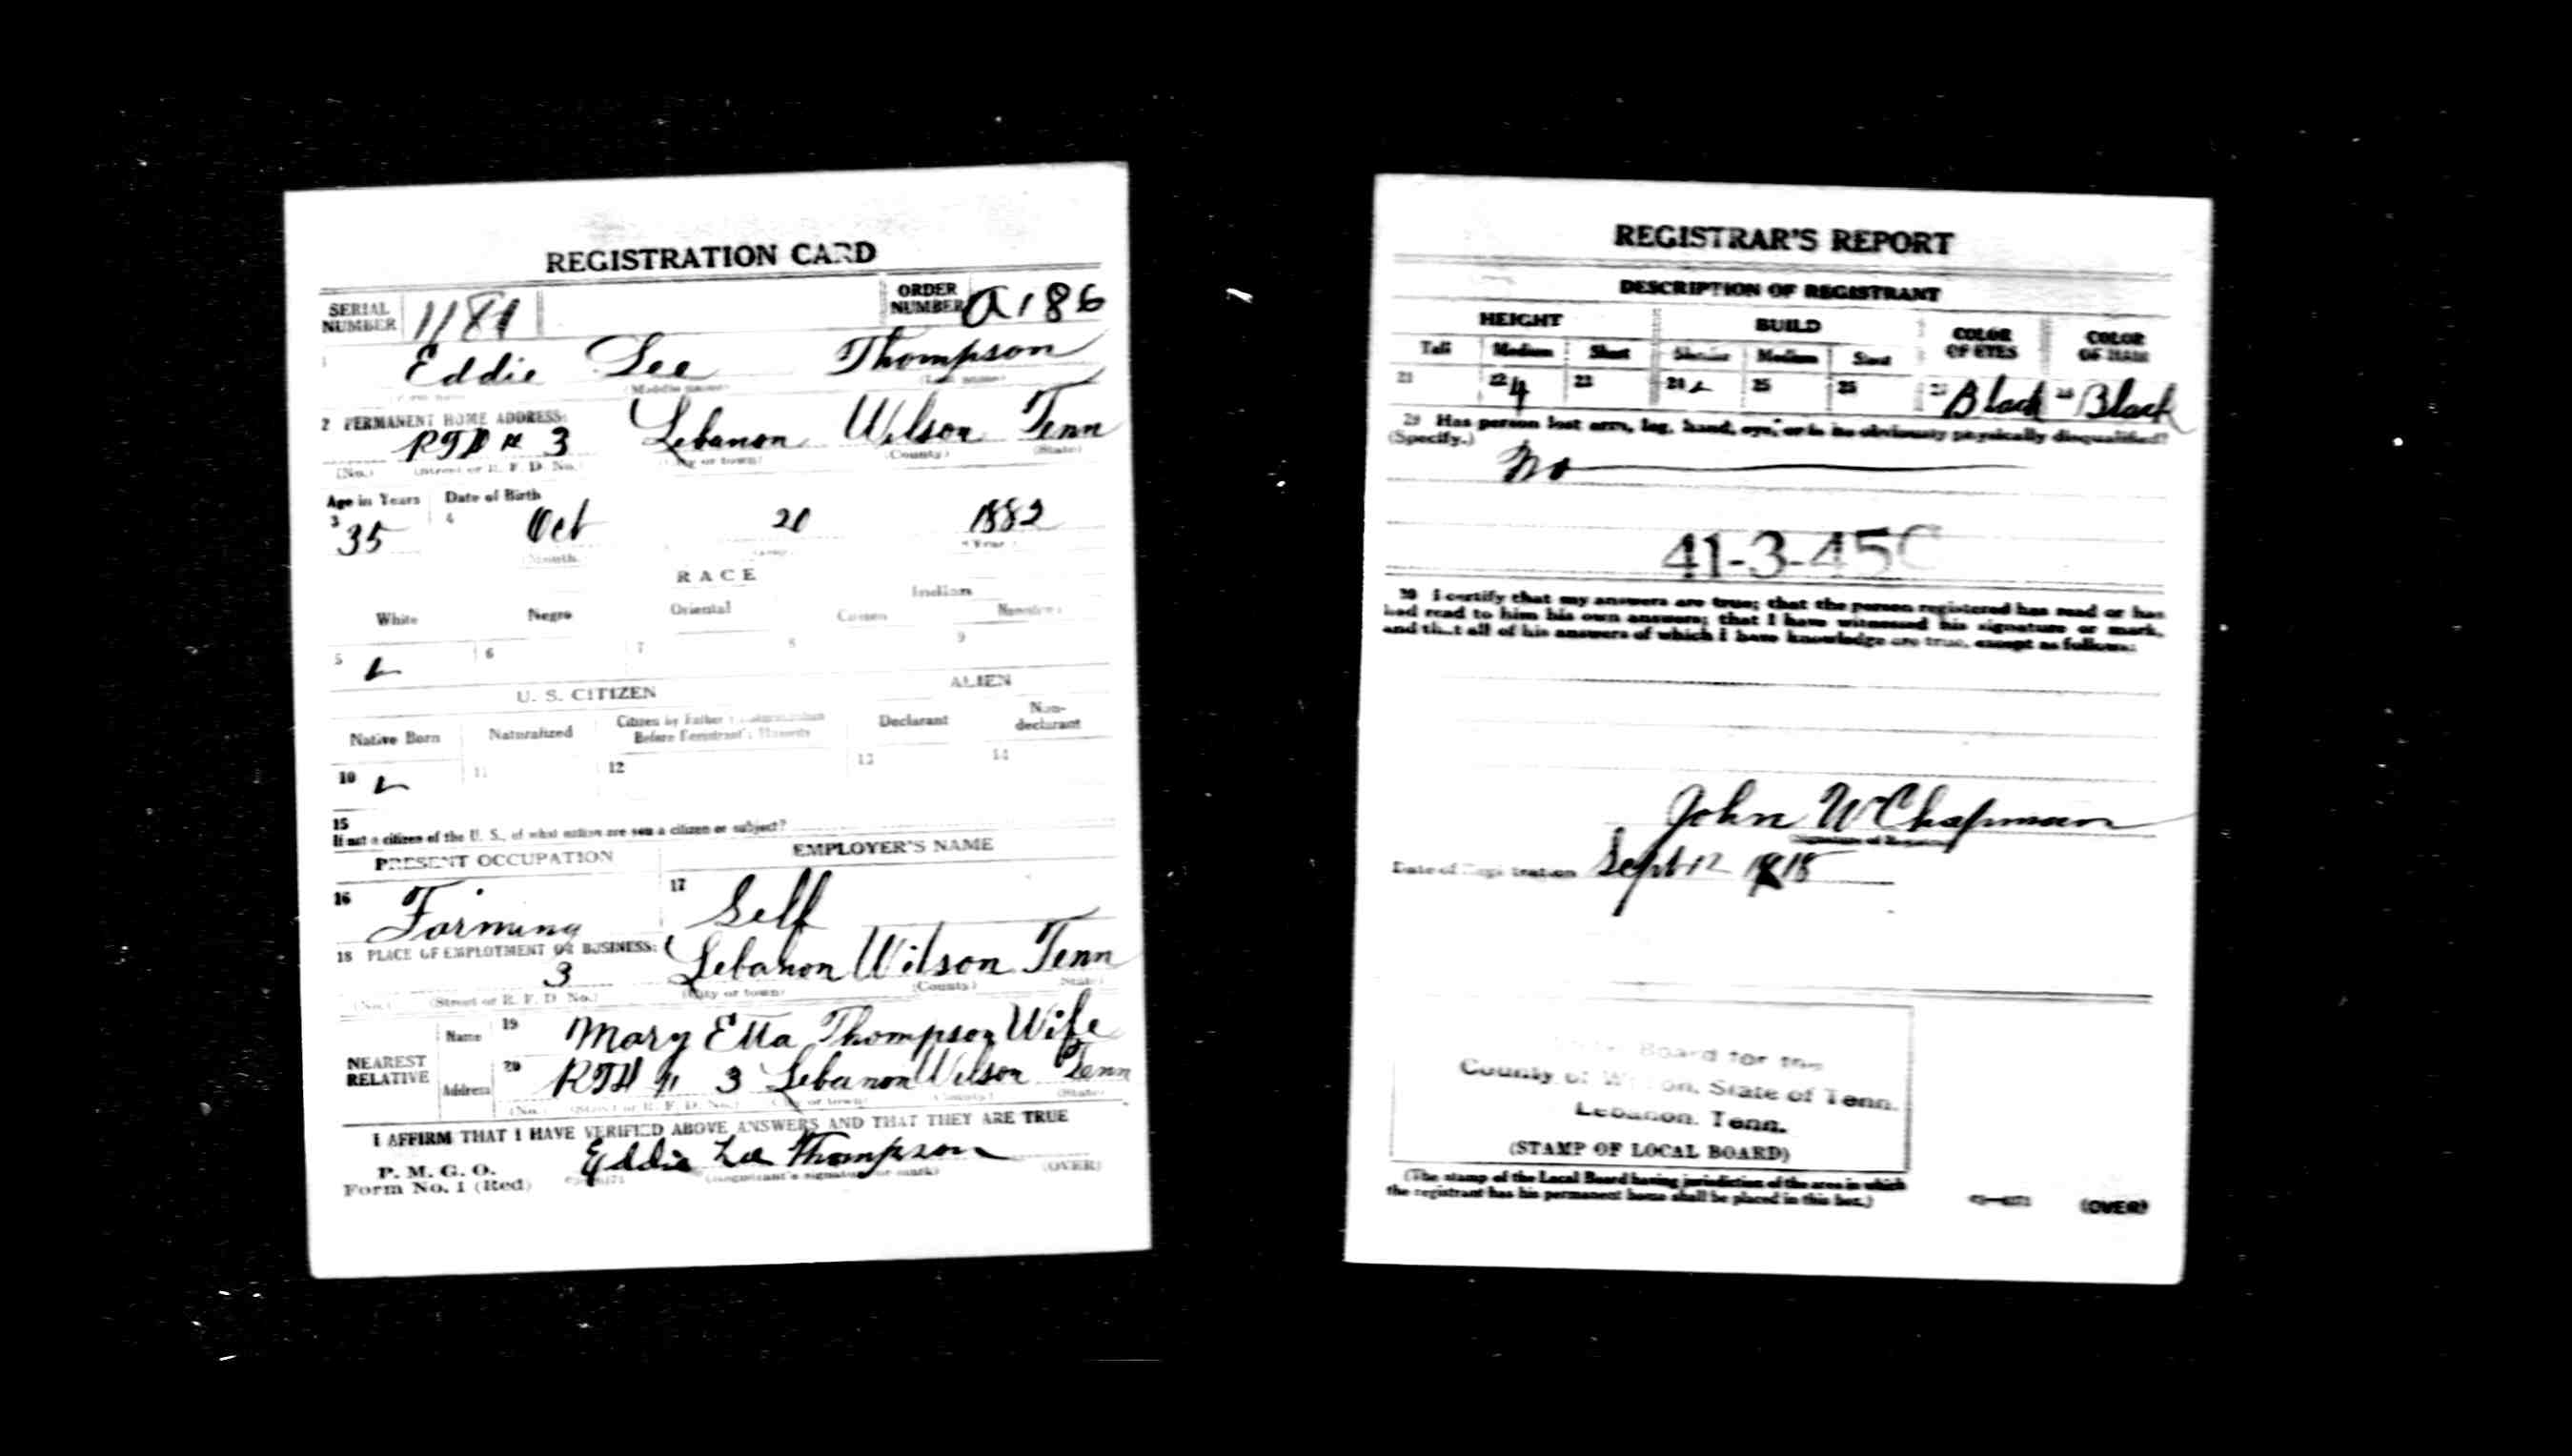 REGISTRATION CARD
SERIAL NUMBER 1181 ORDER NUMBER A186
1 Eddie Lee Thompson
(Middle name)
2 PERMANENT HOME ADDRESS:
RFD # 3 Lebanon Wilson Tenn
(No.) (Street or R. F. D. No.) (City or town) (County) (State)
Age in Years Date of Birth
3 35 4 Oct 20 1882
(Month) (Year)
RACE
White Negro Oriental Indian
Citizen Noncitizen
5 6 7 8 9
U. S. CITIZEN ALIEN
Native Born Naturalized Citizen by Father's Naturalization Before Registrant's Majority Declarant Non-declarant
10 11 12 13 14
15
If not a citizen of the U. S., of what nation are you a citizen or subject?
PRESENT OCCUPATION EMPLOYER'S NAME
16 Farming 17 Self
18 PLACE OF EMPLOYMENT OR BUSINESS:
3 Lebanon Wilson Tenn
(No.) (Street or R. F. D. No.) (City or town) (County) (State)
NEAREST RELATIVE
Name 19 Mary Etta Thompson Wife
Address 20 RFD # 3 Lebanon Wilson Tenn
(No.) (Street or R. F. D. No.) (City or town) (County) (State)
I AFFIRM THAT I HAVE VERIFIED ABOVE ANSWERS AND THAT THEY ARE TRUE
P. M. G. O.
Form No. 1 (Red) Eddie Lee Thompson
(Registrant's signature or mark) (OVER)
REGISTRAR'S REPORT
DESCRIPTION OF REGISTRANT
HEIGHT BUILD COLOR OF EYES COLOR OF HAIR
Tall Medium Short Slender Medium Stout
21 22 23 24 25 26 27 Black 28 Black
29 Has person lost arm, leg, hand, eye, or is he obviously physically disqualified?
(Specify.) No
41-3-45C
30 I certify that my answers are true; that the person registered has read or has
had read to him his own answers; that I have witnessed his signature or mark,
and that all of his answers of which I have knowledge are true, except as follows:
John W Chapman
(Signature of Registrar)
Date of Registration Sept 12 1918
Board for the
County of Wilson, State of Tenn.
Lebanon, Tenn.
(STAMP OF LOCAL BOARD)
(The stamp of the Local Board having jurisdiction of the area in which
the registrant has his permanent home shall be placed in this box.)
(OVER)